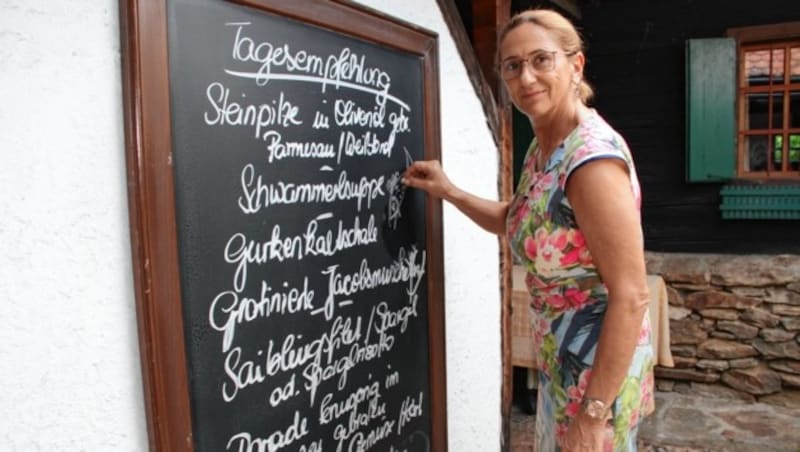 Tagesempfehlung
Steinpilze in Olivenöl gebr.
Parmesan/Weißbrot
Schwammerlsuppe
Gurkenkaltschale
Gratinierte Jacobsmuscheln
Saiblingsfilet/Spargel
od. Spargelrisotto
Parade knusprig im
gebraten
Gemüse/